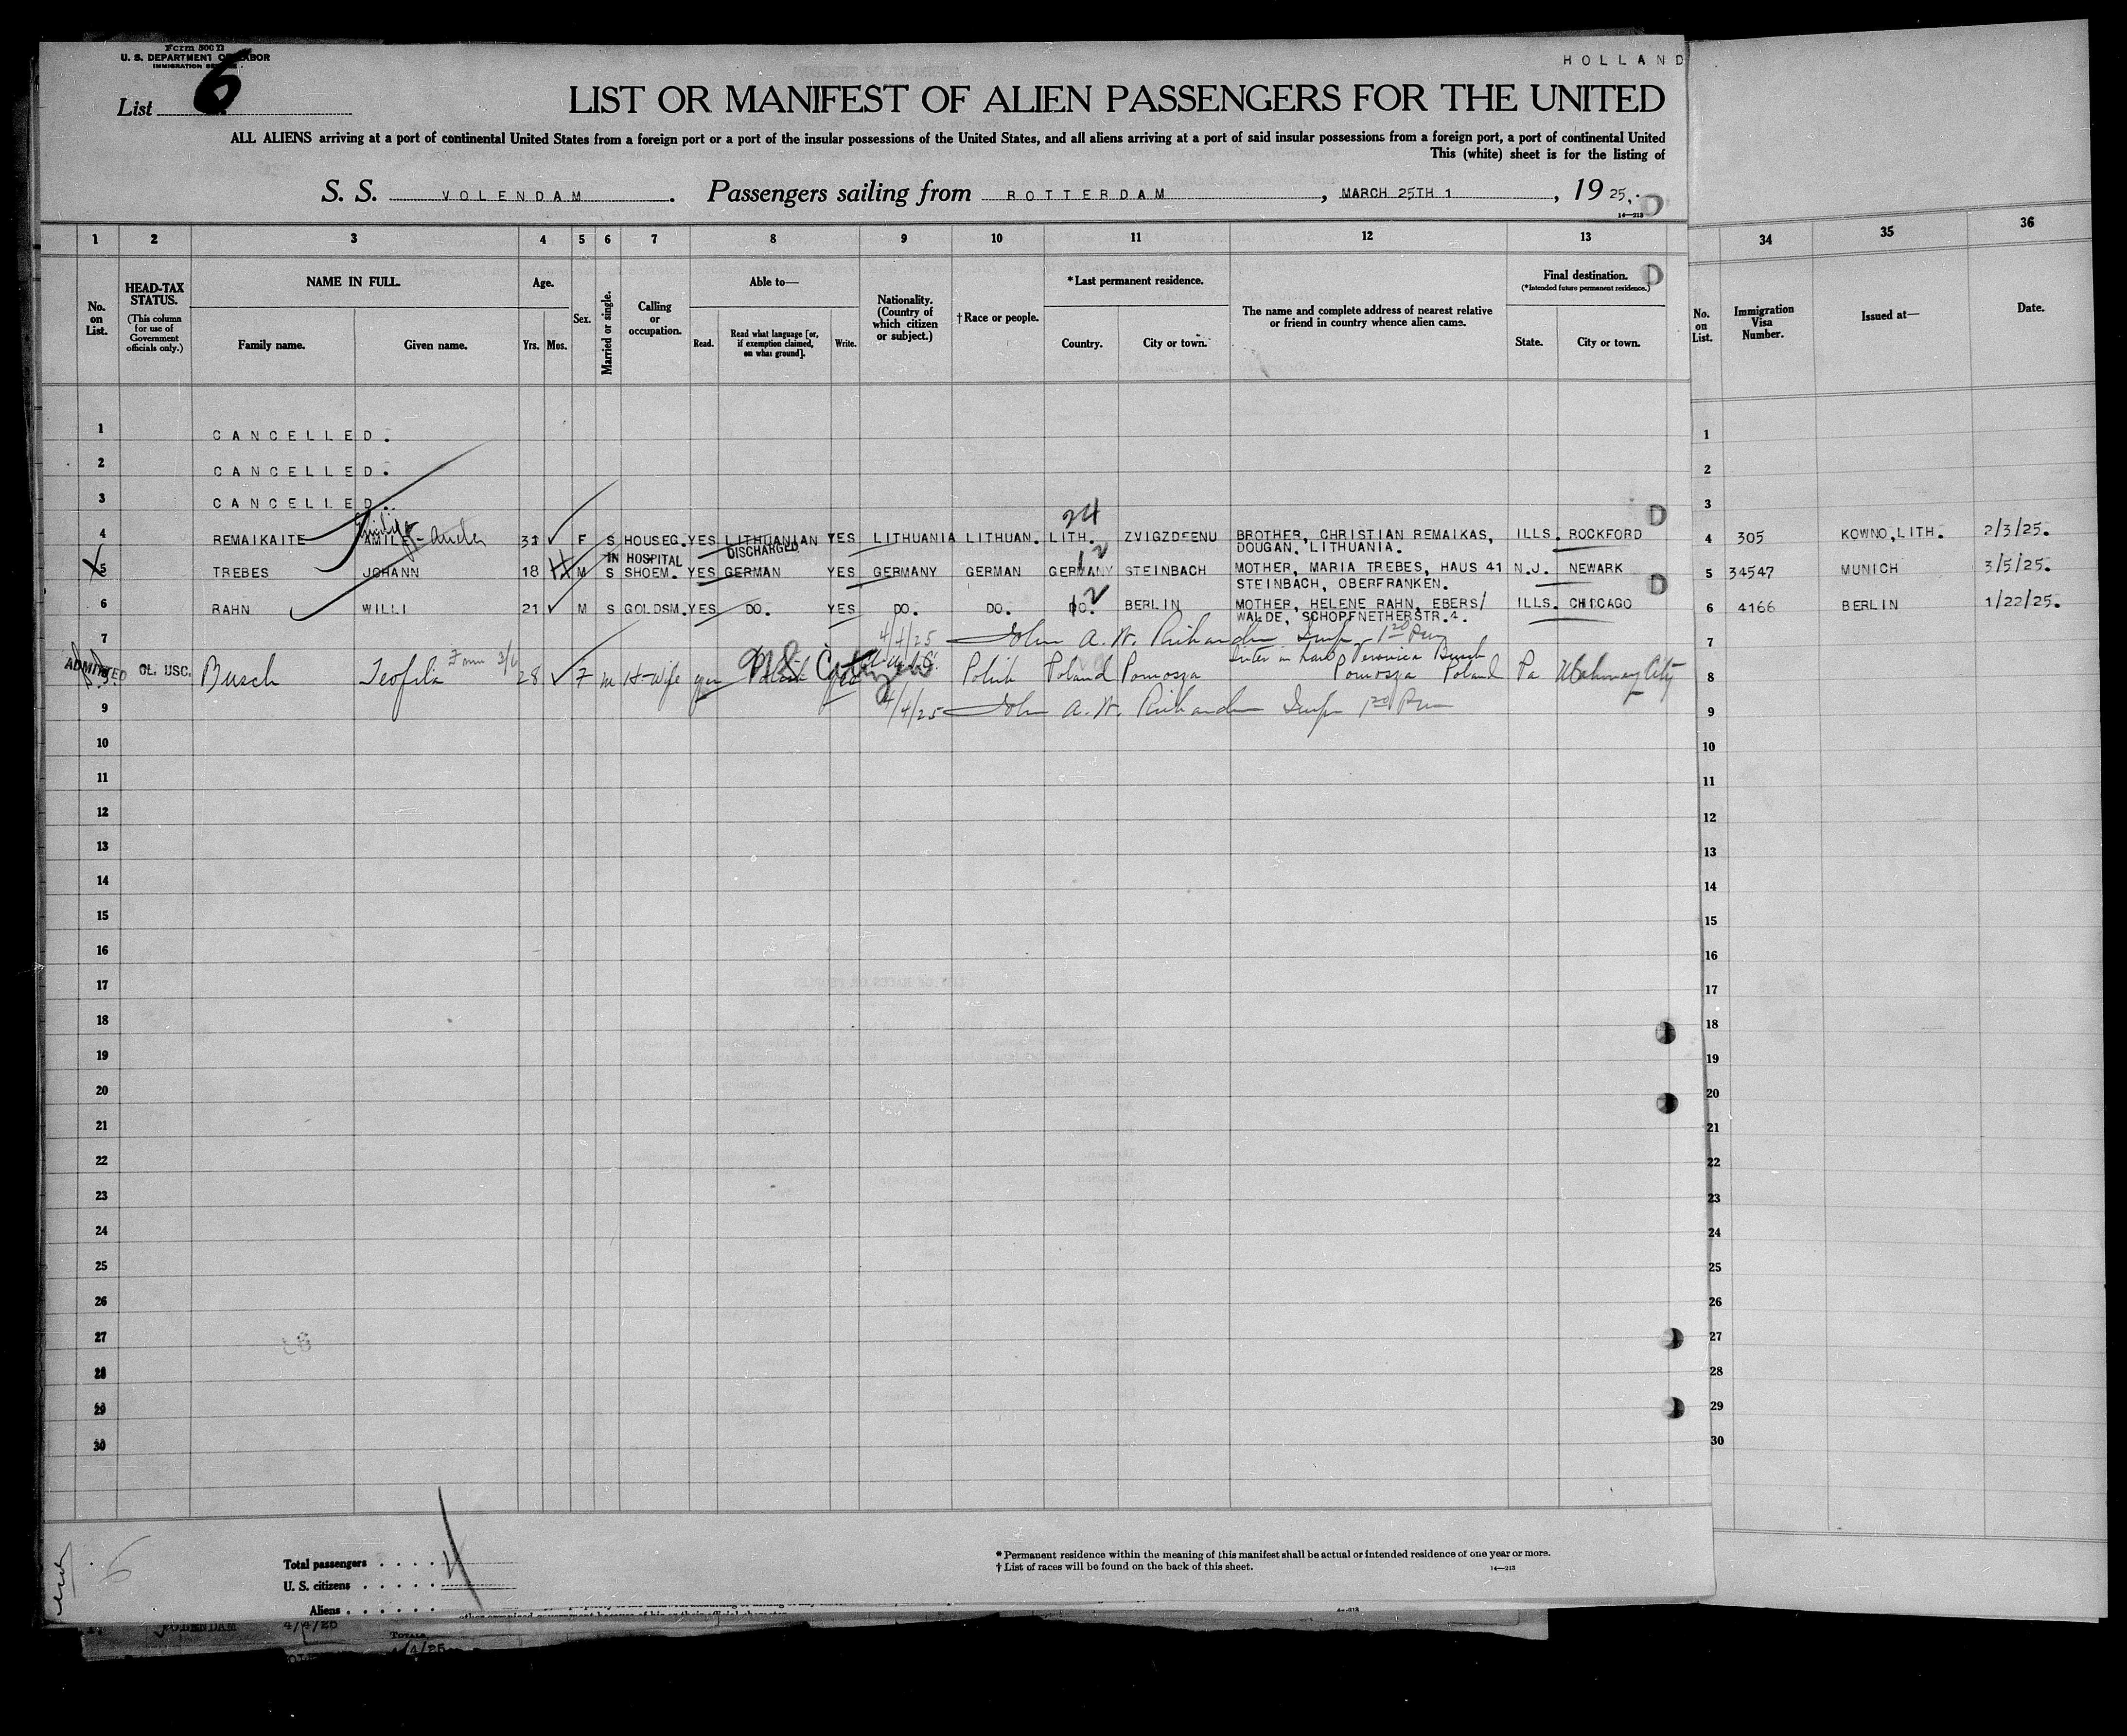 Form 500 D
U. S. DEPARTMENT OF LABOR
IMMIGRATION SERVICE
HOLLAND
List 6
LIST OR MANIFEST OF ALIEN PASSENGERS FOR THE UNITED
ALL ALIENS arriving at a port of continental United States from a foreign port or a port of the insular possessions of the United States, and all aliens arriving at a port of said insular possessions from a foreign port, a port of continental United
This (white) sheet is for the listing of
S. S. VOLENDAM. Passengers sailing from ROTTERDAM, MARCH 25TH 1, 1925.
14—213
1 2 3 4 5 6 7 8 9 10 11 12 13 34 35 36
No. on List.
HEAD-TAX STATUS.
(This column for use of Government officials only.)
NAME IN FULL.
Family name. Given name.
Age.
Yrs. Mos.
Sex.
Married or single.
Calling or occupation.
Able to—
Read. Read what language [or, if exemption claimed, on what ground]. Write.
Nationality. (Country of which citizen or subject.)
†Race or people.
*Last permanent residence.
Country. City or town.
The name and complete address of nearest relative or friend in country whence alien came.
Final destination.
(*Intended future permanent residence.)
State. City or town.
No. on List.
Immigration Visa Number.
Issued at—
Date.
1 CANCELLED. 1
2 CANCELLED. 2
3 CANCELLED. 3
24
4 REMAIKAITE AMILE 31 F S HOUSEG. YES LITHUANIAN YES LITHUANIA LITHUAN. LITH. ZVIGZDEENU BROTHER, CHRISTIAN REMAIKAS, ILLS. ROCKFORD 4 305 KOWNO, LITH. 2/3/25.
DOUGAN, LITHUANIA.
IN HOSPITAL DISCHARGED
5 TREBES JOHANN 18 M S SHOEM. YES GERMAN YES GERMANY GERMAN GERMANY STEINBACH MOTHER, MARIA TREBES, HAUS 41 N.J. NEWARK 5 34547 MUNICH 3/5/25.
STEINBACH, OBERFRANKEN.
6 RAHN WILLI 21 M S GOLDSM. YES DO. YES DO. DO. DO. BERLIN MOTHER, HELENE RAHN, EBERS/ ILLS. CHICAGO 6 4166 BERLIN 1/22/25.
WALDE, SCHOPFNETHERSTR.4.
7 4/4/25 John A. W. Richardson Insp 1 20 Pm 7
Sister in law Veronica Busch
ADMITTED GL. USC. Busch Teofila 28 F m H-wife yes Polish yes US Citizen Polish Poland Pomosza Pomosza Poland Pa Mahanoy City 8
9 4/4/25 John A. W. Richardson Insp 1 20 Pm 9
10 10
11 11
12 12
13 13
14 14
15 15
16 16
17 17
18 18
19 19
20 20
21 21
22 22
23 23
24 24
25 25
26 26
27 27
28 28
29 29
30 30
Total passengers . . . . 4
U. S. citizens . . . . .
Aliens . . . . . .
* Permanent residence within the meaning of this manifest shall be actual or intended residence of one year or more.
† List of races will be found on the back of this sheet.
14—213
VOLENDAM 4/4/25
TOTALS
4/4/25